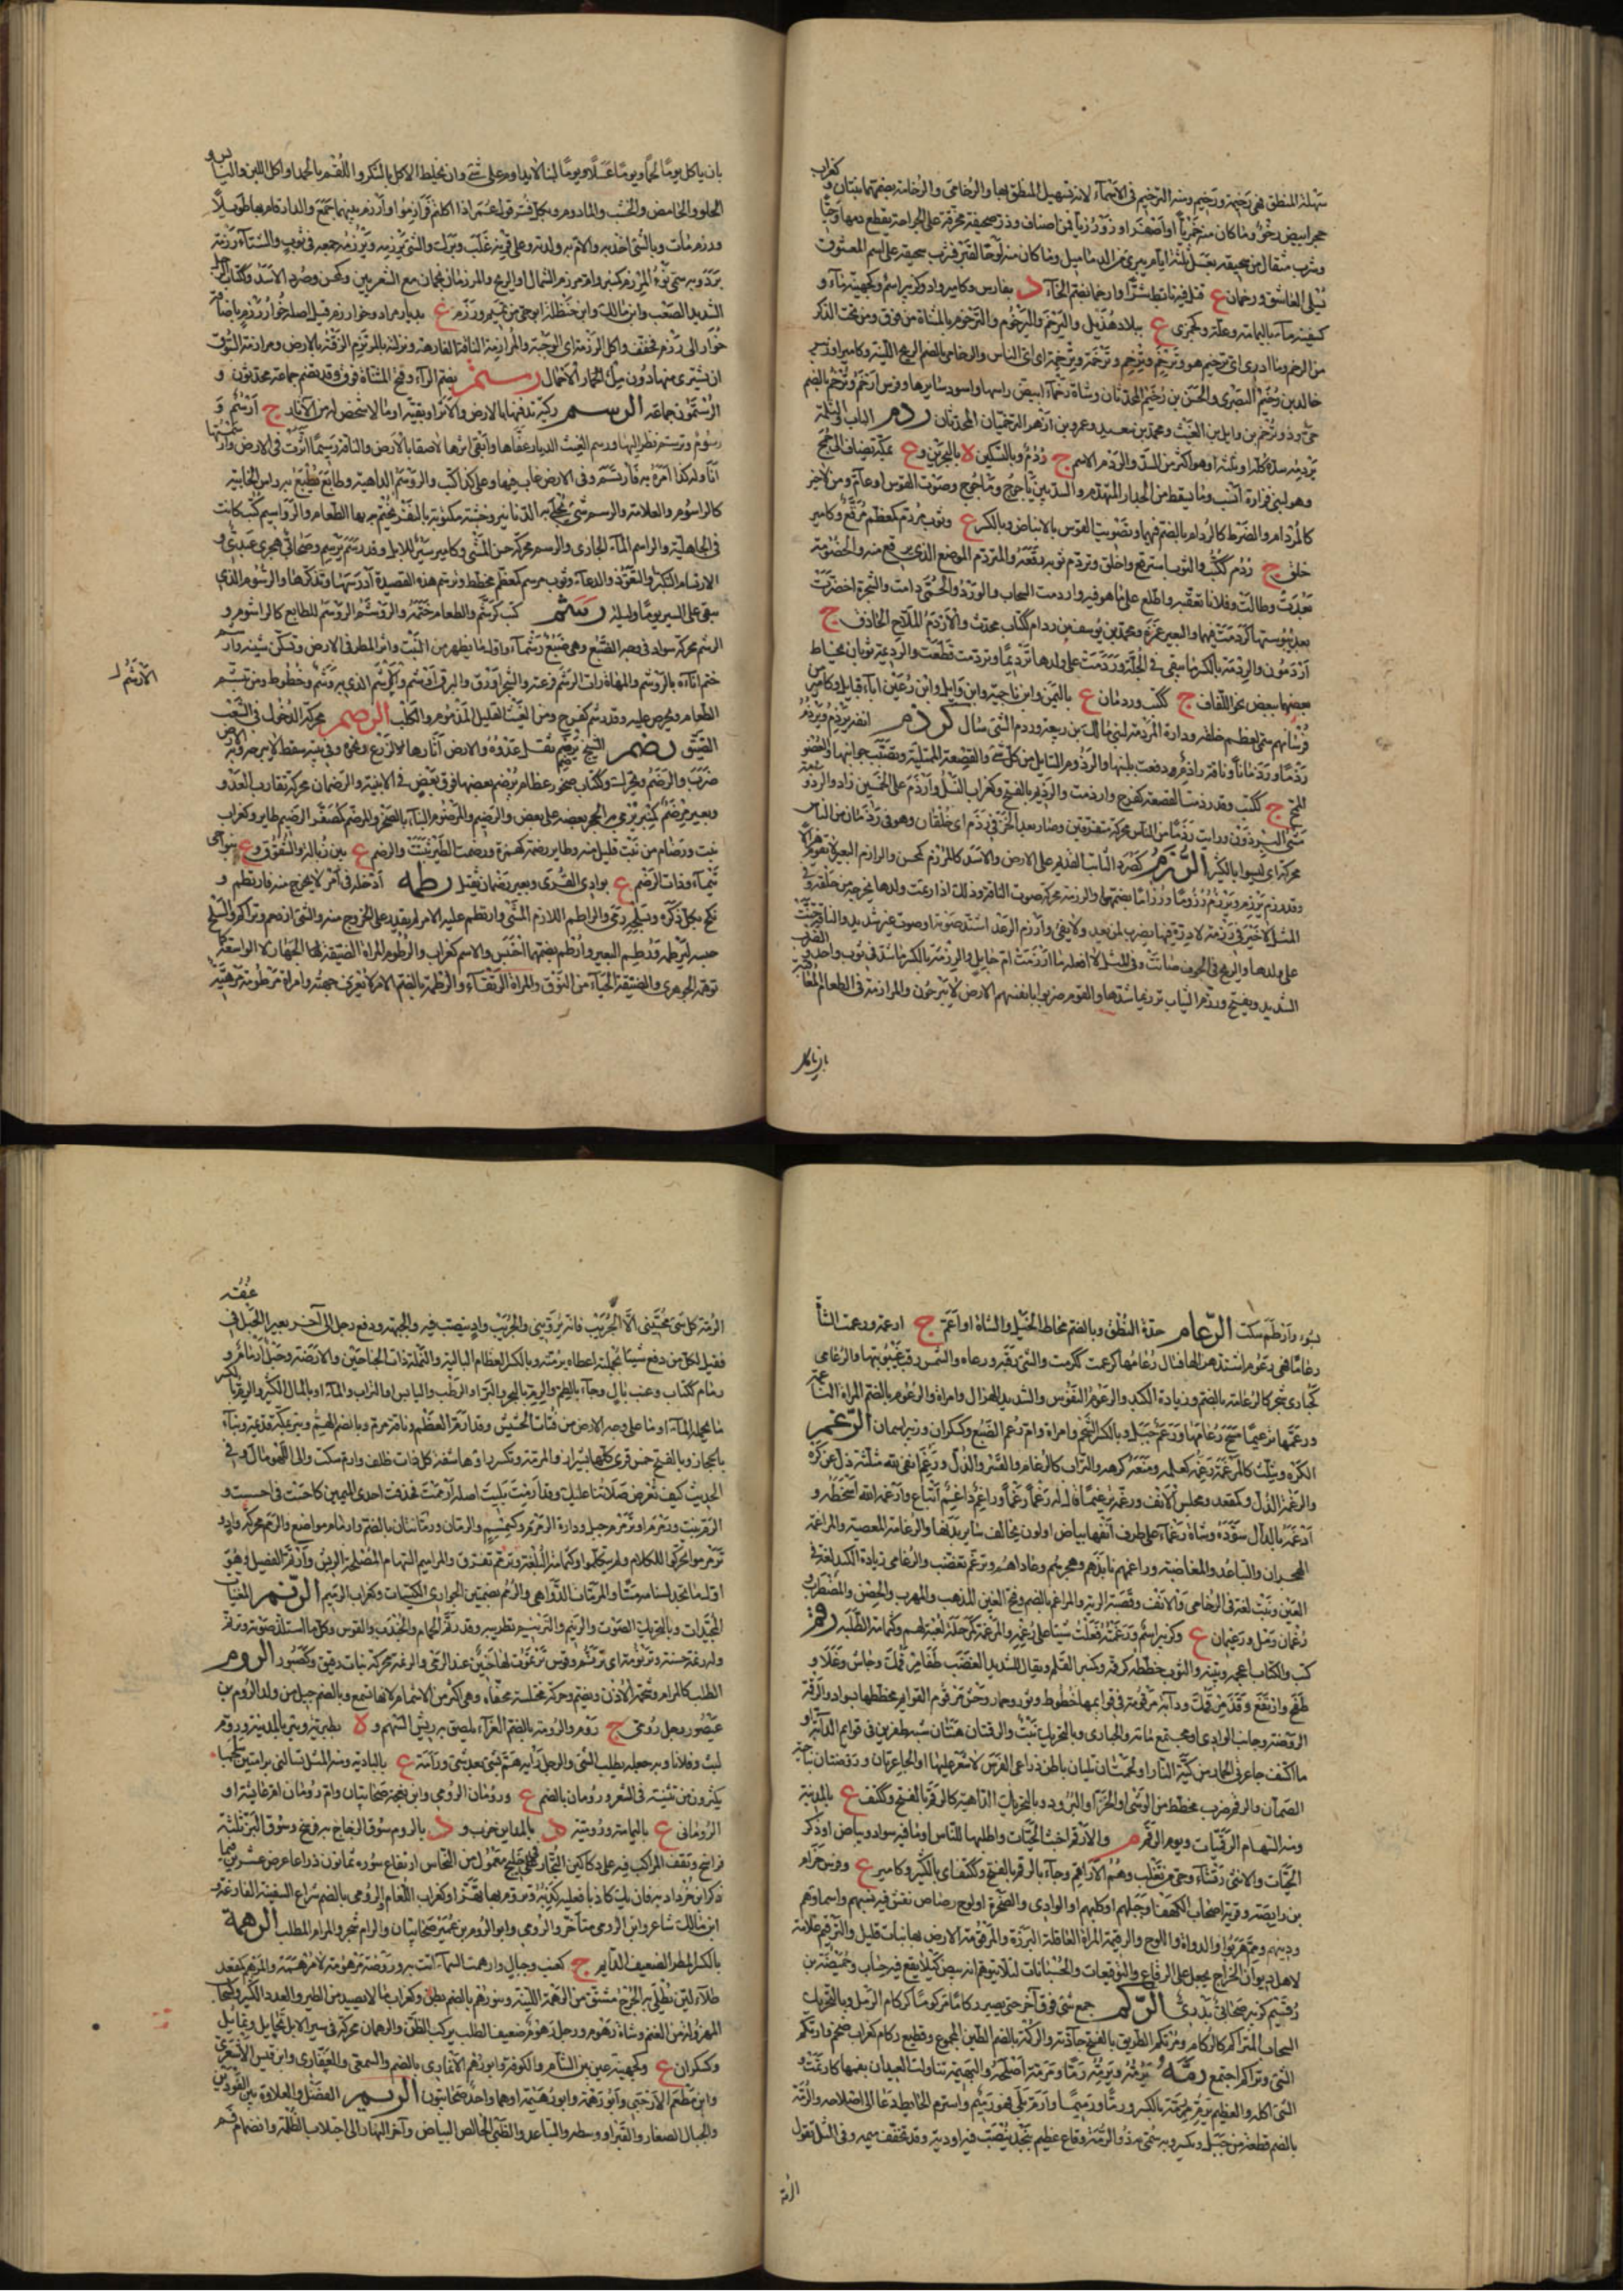 سهلة المنطق فهي رخيمة ورخيم ومنه الترخيم في الاسمآء لانه تسهيل للمنطق بها والرخامى والرخامة بضمهما نبتان و
كغراب
حجر ابيض رخو وما كان منه خمريا او اصفر او زرزوريا فمن اصناف وذر سحيقه محرقة على الجراحة يقطع دمها وحيا
وشرب مثقال من سحيقه بعسل ثلثة ايام يبرئ من الدماميل وما كان منه لوحا لقبر فشرب سحيقه على اسم المعشوق
يسلى العاشق ورخمان ع قتل فيه تابط شرا وارخمان بضم الخآء د بفارس وكامير واد وكزبير اسم وكجهينة مآء و
كسفينة مآء باليمامة وعلة وكجمزى ع ببلاد هذيل واليرخم واليرخوم والترخوم بالمثناة من فوق ومن تحت الذكر
من الرخم وما ادرى اى ترخم هو وترخم وترخم وترخمة وترخمة اى اى الناس والرخامى بالضم الريح اللينة وكامير او زبير
خالد بن رخيم البصرى والحسن بن رخيم المحدثان وشاة رخمآء ابيض راسها واسود سايرها وفرس ارخم وترخم بالضم
حى وذو ترخم بن وايل بن الغوث ومحمد بن سعيد وعمرو بن ازهر الترخميان المحدثان ردم الباب والثلمة
يردمه سده كله او ثلثه او هو اكثر من السد والردم الاسم ج ردم وبالتسكين ة بالبحرين و ع بمكة يضاف الى بنى جمح
وهو لبنى قراد وما يسقط من الجدار المتهدم والسد بين ياجوج وماجوج وصوت القوس او عام ومن لاخير
كالمردام والضرط كالردام بالضم فيهما وتصويت القوس بالانباض وبالكسر ع وثوب مردم كمعظم مرقع وكامير
خلق ج ردم ككتب والثوب استرقع واخلق وتردم ثوبه رقعه والمتردم الموضع الذى يرقع منه والخصومة
بعدت وطالت وفلانا تعقبه واطلع على ما هو فيه واردمت السحاب والورد والحمى دامت والشجرة اخضرت
بعد يبوستها كردمت فيهما والبعير غمزه ومحمد بن يوسف بن ردام ككتاب محدث والاردم الملاح الحاذق ج
اردمون والردمة بالكسر ما يبقى في الجلة وردمت على ولدها ترديما وتردمت قطعت والرديمة ثوبان يخاط
بعضهما ببعض نحو اللفاق ج ككتب وردمان ع باليمن وابن ناجية وابن وايل وابن رعين اباء قبايل وكامير من
فرسانهم سمى لعظم خلقه ودارة المردمة لبنى مالك بن ربيعة وردم الشى سال كردم انفه يرذم ويرذم
رذما ورذمانا وناقة راذم دفعت بلبنها والرذوم السايل من كل شئ والقصعة الممتلية وتصبب جوانبها والعضو
الممخ ج ككتب وقد رذمت القصعة كفرح وارذمت والرذم بالفتح وكغراب الفسل وارذم على الخمسين زاد والرذو
سعة
مشى البرذون ورايت رذما من الناس محركة متفرقين وصار بعد الخز في رذم اى خلقان وهو في رذمان من الناس
محركة اى ليسوا بالكثير الرزم كصرد الثابت القايم على الارض والاسد كالمرزم كمحسن والرازم البعير لا يقوم هزالا
وقد رزم يرزم ويرزم رزوما ورزاما بضمهما والرزمة محركة صوت الناقة وذلك اذا رعت ولدها تخرجه من حلقها وفي
المثل لاخير في رزمة لا درة فيها يضرب لمن يعد ولا يفي وارزم الرعد اشتد صوته او صوت غير شديد والناقة حنت
على ولدها والريح في الجوف صاتت وفي المثل لا افعله ما ارزمت ام حايل والرزمة بالكسر ما شد في ثوب واحد و
الضرب
الشديد ويفتح ورزم الثياب ترزيما شدها والقوم ضربوا بانفسهم الارض لا يبرحون والمرازمة في الطعام المعاقبة
بان ياكل
بان ياكل يوما لحما ويوما عسلا ويوما لبنا لا يداوم على شئ وان يخلط الاكل بالشكر واللقم بالحمد او اكل اللين واليابس و
الحلو والحامض والخشب والمادوم وبكل فسر قول عمر اذا اكلتم فرازموا ورازم بينهما جمع والدار اقام بها طويلا
ورزم مات وبالشئ اخذ به والام به ولدته وعلى قرنه غلب وبرك والشئ يرزمه ويرزمه جمعه في ثوب والشتآء رزمة
برد وبه سمى نوء المرزم كمنبر وام مرزم الشمال او الريح والمرزمان نجمان مع الشعريين وكمحسن وصرد الاسد وككتاب الرجل
الشديد الصعب وابن مالك وابن حنظلة ابو حى من تميم ورزم ع بديار مراد وخوارزم قيل اصله خوار رزم بلد باضافة
خوار الى رزم فخفف واكل الرزمة اى الوجبة والمرزامة الناقة الفارهة وتركته بالمرتزم الزقته بالارض ومرازمة السوق
ان يشترى منها دون ملء الحمار الاحمال رستم بضم الرآء وفتح المثناة فوق وقد تضم جماعة محدثون و
الرستميون جماعة الرسم ركية تدفنها بالارض والاثر او بقيته او ما لا شخص له من الآثار ج ارسم و
رسوم وترسم نظر اليها ورسم الغيث الديار عفاها وابقى اثرها لاصقا بالارض والناقة رسيما اثرت في الارض وارسمتها
انا وله كذا امره به فارتسم وفي الارض غاب فيها وعلى كذا كتب والروسم الداهية وطابع يطبع به راس الخابية
كالراسوم والعلامة والرسم شئ تجلى به الدنانير وخشبة مكتوبة بالنقر يختم بها الطعام والرواسيم كتب كانت
في الجاهلية والراسم المآء الجارى والرسم محركة حسن المشى وكامير سير للابل وقد رسم يرسم وصحابي هجرى عبدى و
الارتسام التكبير والتعوذ والدعآء وثوب مرسم كمعظم مخطط وترسم هذه القصيدة ادرسها وتذكرها والرسوم الذى
يبقى على السير يوما وليلة رشم كتب كرشم والطعام ختمه والروشم الروسم للطابع كالراشوم و
الرشم محركة سواد في وجه الضبع وهى ضبع رشمآء واول ما يظهر من النبت واثر المطر في الارض وتسكن شينه وارشم
ختم اناءه بالروشم والمهاة رات الرشم فرعته والشجر اورق والبرق اوشم والارشم الذى به وشم وخطوط ومن يتشمم
الارثم
الطعام ويحرص عليه وقد رشم كفرح ومن الغيث القليل المذموم والكلب الرصم محركة الدخول في الشعب
الضيق رضم الشيخ يرضم ثقل عدوه والارض اثارها لازرع ونحوه وفي بيته سقط لا يخرج منه وبه
ضربه والرضم ويحرك وككتاب صخور عظام يرضم بعضها فوق بعض في الابنية والرضمان محركة تقارب العدو و
وبعير مرضم كمنبر يرمى بالحجر بعضه على بعض والرضيم والمرضوم البناء بالصخر والمرضم كمصغر الرضيم طاير وكغراب
نبت ورضام من نبت قليل منه وطاير رضمة كهمزة ورضمت الطير ثبتت والرضم ع بين زبالة والشقوق و ع بنواحى
تيمآء وذات الرضم ع بوادى القرى وبعير رضمان ثقيل رطمه ادخله في امر لا يخرج منه فارتطم و
نكح بكل ذكره وبسلحه رمى والراطم اللازم للشئ وارتطم عليه الامر لم يقدر على الخروج منه والشئ ازدحم وتراكم والسلح
حبسه كترطمه ورطم البعير وارطم بضمهما احتبس والاسم كغراب والرطوم المراة الضيقة لها الجهاز لا الواسعة كما
توهمه الجوهرى والضيقة الحيآء من النوق والمراة الرتقآء والرطمة بالضم الامر لا تعرف جهته وامراة مرطومة مرميه
بسوء وارطم سكت الرعام حدة النظر وبالضم مخاط الخيل والشاة او اعم ج ارعمة ورعمت الشاة
رعاما فهى رعوم اشتد هزالها فسال رعامها كرعمت ككرمت والشئ رقبه ورعاه والشمس رقب غيبوبتها والرعامى
كحبارى شجر كالرعامة بالضم وزيادة الكبد والرعوم النفوس والشديد الهزال وامراة والرعوم بالضم المراة الناعمة
ورعمها ترعيما مسح رعامها ورعم جبل وبالكسر الشحم وامراة وام رعم الضبع وكسكران وزبير اسمان الرغم
الكره ويثلث كالمرغمة رغمه كعلمه ومنعه كرهه والتراب كالرغام والقسر والذل ورغم انفى لله مثلثة ذل عن كره
والرغم الذل وكمقعد ومجلس الانف ورغمه ترغيما قال له رغما رغما وراغم داغم اتباع وارغمه الله اسخطه و
ادغمه بالدال سوده وشاة رغمآء على طرف انفها بياض او لون يخالف ساير بدنها والرغامة المعصية والمراغمة
الهجران والتباعد والمغاضبة وراغمهم نابذهم وهجرهم وعاداهم وترغم تغضب والرغامى زيادة الكبد لغة في
العين ونبت لغة في الرخامى والانف وقصبة الرية والمراغم بالضم وفتح الغين المذهب والمهرب والحصن والمضطرب و
رغمان رمل ورغيمان ع وكزبير اسم ورغمته فعلت شيئا على رغمه والمرغمة كمرحلة لعبة لهم وكثمامة الطلبة رقم
كتب والكتاب اعجمه وبينه والثوب خططه كرقمه وكمنبر القلم ويقال للشديد الغضب طفا مرقمك وجاش وغلا و
طفح وارتفع وقذف مرقمك ودابة مرقومة في قوايمها خطوط وثور وحمار وحش مرقوم القوايم مخططها بسواد والرقمة
الروضة وجانب الوادى او مجتمع مائه والخبازى وبالتحريك نبت والرقمتان هنتان شبه ظفرين في قوايم الدابة او
ما اكتنف جاعرتى الحمار من كية النار او لحمتان تليان باطن ذراعى الفرس لا شعر عليهما او الجاعرتان وروضتان بناحية
الصمان والرقم ضرب مخطط من الوشى او الخز او البرود وبالتحريك الداهية كالرقم بالفتح وككتف ع بالمدينة
ومنه السهام الرقميات ويوم الرقم م والارقم اخبث الحيات واطلبها للناس او ما فيه سواد وبياض او ذكر
الحيات والانثى رقشآء وحى من تغلب وهم الاراقم وجآء بالرقم بالفتح وككتف اى بالكثير وكامير ع وفرس حزام
بن وابصة وقرية اصحاب الكهف او جبلهم او كلبهم او الوادى او الصخرة او لوح رصاص نقش فيه نسبهم واسماؤهم
ودينهم ومم هربوا او الدواة واللوح والرقيمة المراة العاقلة البرزة والمرقومة الارض بها نبات قليل والترقيم علامة
لاهل ديوان الخراج يجعل على الرقاع والتوقيعات والحسبانات ليلا يتوهم انه بيض كيلا يقع فيه حساب وحميضة بن
رقيم كزبير صحابي بدرى الركم جمع شئ فوق آخر حتى يصير ركاما مركوما كركام الرمل وبالتحريك
السحاب المتراكم كالركام ومرتكم الطريق بالفتح جادته والركمة بالضم الطين المجموع وقطيع ركام كغراب ضخم وارتكم
الشئ وتراكم اجتمع رمه يرمه ويرمه رما ومرمة اصلحه والبهيمة تناولت العيدان بفمها كارتمت و
الشئ اكله والعظم يرم رمة بالكسر ورما ورميما وارم بلى فهو رميم واسترم الحايط دعا الى اصلاحه والرمة
بالضم قطعة من حبل ويكسر وبه سمى ذو الرمة وقاع عظيم بنجد تنصب فيه اودية وقد تخفف ميمه وفي المثل تقول
الرمة
الرمة كل شئ يحسينى الا الجريب فانه يروينى والجريب واد ينصب فيه والجبهة ودفع رجل الى آخر بعيرا بحبل في
عنقه
فقيل لكل من دفع شيئا بجملته اعطاه برمته وبالكسر العظام البالية والنملة ذات الجناحين والارضة وحبل ارمام و
رمام ككتاب وعنب بال وجآء بالطم والرم بالبحر والبر او الرطب واليابس او التراب والمآء او بالمال الكثير والرم بالكسر
ما يحمله المآء او ما على وجه الارض من فتات الحشيش وقد ارم العظم وناقة مرم وبالضم الهم وبير بمكة قديمة وبنآء
بالحجاز وبالفتح خمس قرى كلها بشيراز والمرمة وتكسر راؤها شفة كل ذات ظلف وارم سكت والى اللهو مال وفي
الحديث كيف تعرض صلاتنا عليك وقد ارمت اى بليت اصله ارممت فحذفت احدى الميمين كاحست في احسست و
الرمرم نبت ورمرم او ترمرم جبل ودارة الرمرم وكسمسم والرمان ورمانتان بالضم وارمام مواضع والرمم محركة واد و
ترمرموا تحركوا للكلام ولم يتكلموا وكثمامة البلغة وترمم تفرق والمراميم السهام المصلحة الريش وارم الفصيل وهو
اول ما تجد لسنامه مسا والمرمات الدواهى والرمم بضمتين الجوارى الكيسات وكغراب الرميم الرنم المغنيات
المجيدات وبالتحريك الصوت والرنيم والترنيم تطريبه وقد رنم الحمام والجندب والقوس وكل ما استلذ صوته ورنم
وله رنمة حسنة وترنموتة اى ترنم وقوس ترنموت لها حنين عند الرمى والرنمة محركة نبات دقيق وكصبور الروم
الطلب كالمرام وشحمة الاذن ويضم وحركة مختلسة مخفاة وهى اكثر من الاشمام لانها تسمع وبالضم جيل من ولد الروم بن
عيصو رجل رومى ج روم والرومة بالضم الغرآء يلصق به ريش السهم و ة بطبرية وبئر بالمدينة وروم
لبث وفلانا وبه جعله يطلب الشئ والرجل رايه هم بشئ بعد شئ ورامة ع بالبادية ومنه المثل تسالنى برامتين سلجما
يكثرون من تثنيته في الشعر ورومان بالضم ع ورومان الرومى وابن نعجة صحابيان وام رومان ام عايشة و
الرومانى ع باليمامة ورومية د بالمداين خرب و د بالروم سوق الدجاج به فرسخ وسوق البر ثلثة
فراسخ وتقف المراكب فيه على دكاكين التجار في خليج معمول من النحاس ارتفاع سوره ثمانون ذراعا عرض عشرين فيما
ذكر ابن خرداذبه فان يك كاذبا فعليه كذبه ورومه وبها نزل وكغراب اللغام والرومى بالضم شراع السفينة الفارغة و
ابن مالك شاعر وابن الرومى متاخر والرومى وابو الروم بن عمير صحابيان والرام شجر والمرام المطلب الرهمة
بالكسر المطر الضعيف الدايم ج كعنب وجبال وارهمت السمآء اتت به وروضة مرهومة لا مرهمة والمرهم كمقعد
طلآء لين يطلى به الجرح مشتق من الرهمة للينه وبنو رهم بالضم بطن وكغراب ما لا يصيد من الطير والعدد الكثير وكسحاب
المهزولة من الغنم وشاة رهوم ورجل رهوم ضعيف الطلب يركب الظن والرهمان محركة في سير الابل تحامل وتمايل
وكسكران ع وكجهينة عين بين الشام والكوفة وابو رهم الانمارى بالضم والسمعى والغفارى وابن قيس الاشعرى
وابن مطعم الارحبى وابو رهمة وابو رهيمة او هما واحد صحابيون الريم الفضل والعلاوة بين الفودين
والجبال الصغار والقبر او وسطه والتباعد والظبى الخالص البياض وآخر النهار الى اختلاط الظلمة وانضمام فم